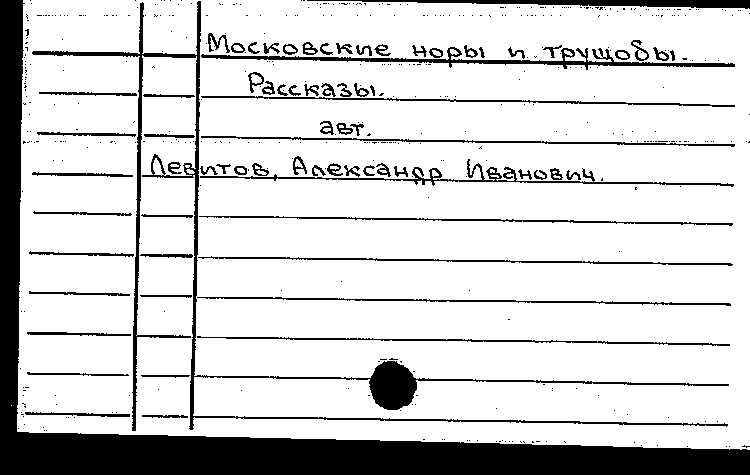 Московские норы и трущобы.
Рассказы.
авт.
Левитов, Александр Иванович.